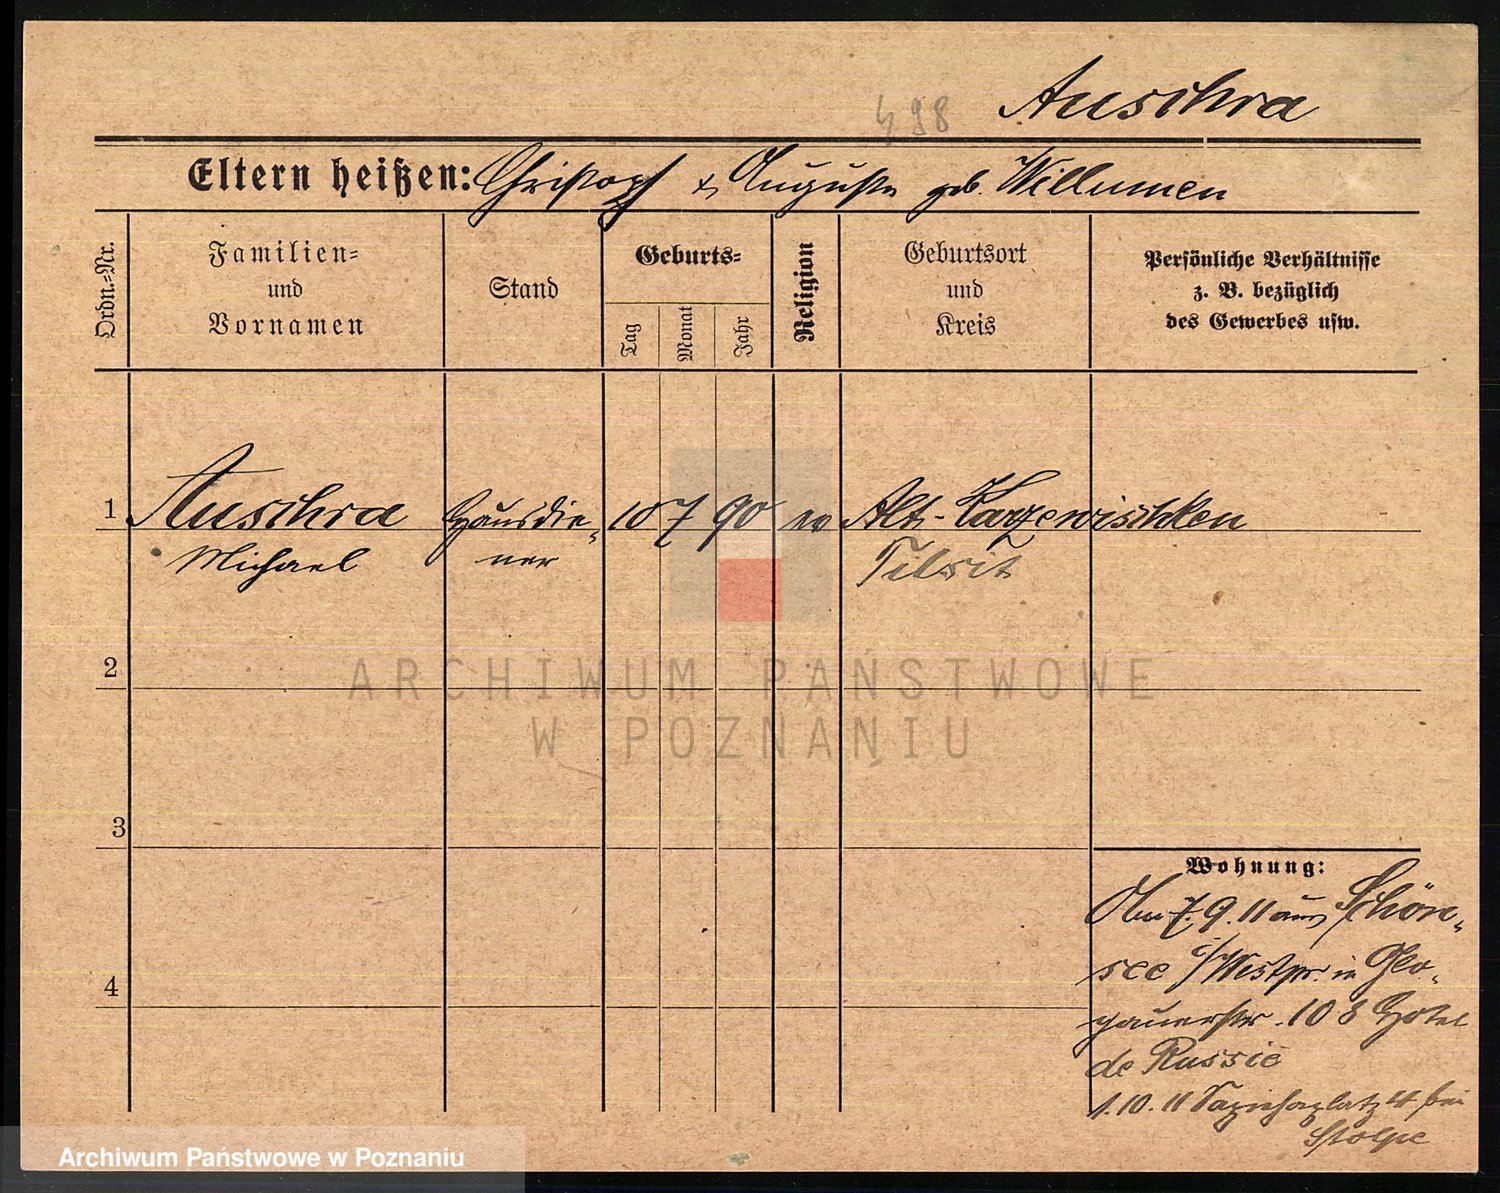 498 Auschra
Eltern heißen: Christoph & Auguste geb. Willumeit
Ordn.-Nr.
Familien-
und
Vornamen
Stand
Geburts-
Tag
Monat
Jahr
Religion
Geburtsort
und
Kreis
Persönliche Verhältnisse
z. B. bezüglich
des Gewerbes usw.
1 Auschra Hausdie- 10 7 90 ev Alt-
Michael ner Tilsit
ARCHIWUM PAŃSTWOWE
2
W POZNANIU
3
Wohnung:
7.9.11 aus Schön-
see i/Westpr. in Glo-
4
gauerstr. 108 Hotel
de Russie
1.10.11 Sapiehaplatz 4 bei
Stolpe
Archiwum Państwowe w Poznaniu